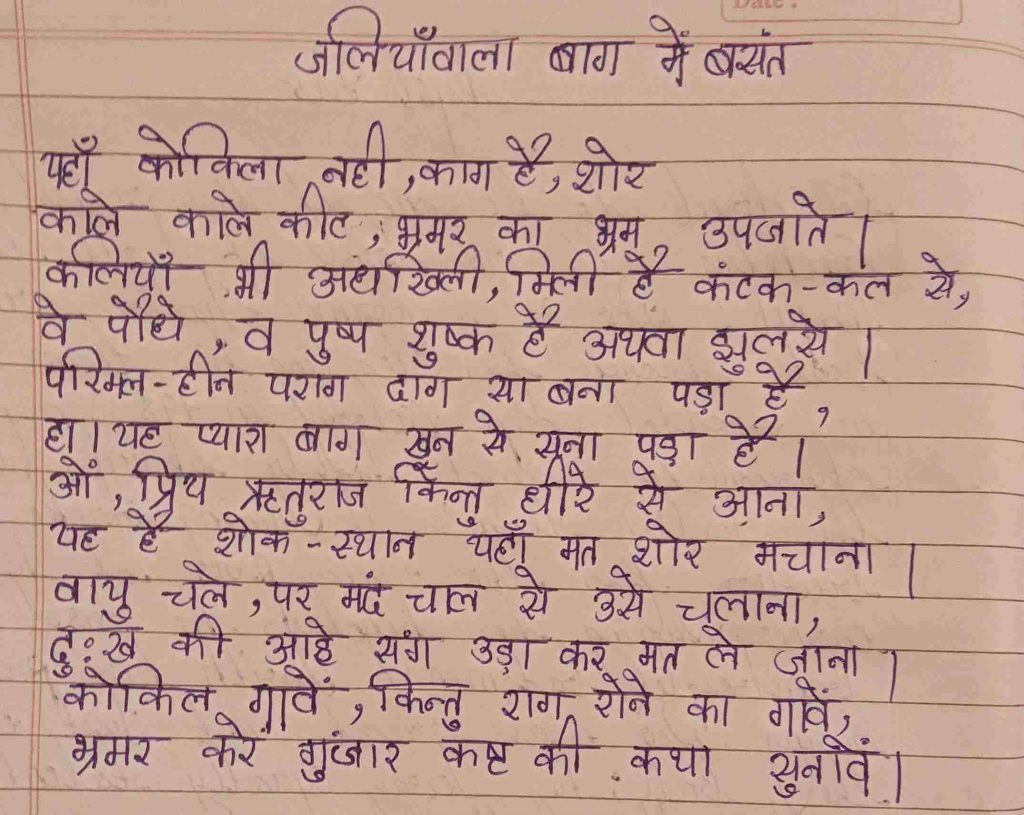 Date :
जलियाँवाला बाग में बसंत
यहाँ कोकिला नही ,काग है , शोर
काले काले कीट , भ्रमर का भ्रम उपजाते |
कलियाँ भी अधखिली , मिली है कंटक-कल से,
वे पौधे , व पुष्प शुष्क है अथवा झुलसे |
परिमल-हीन पराग दाग सा बना पड़ा है ,
हा | यह प्यारा बाग खून से सना पड़ा है |
ओं , प्रिय ऋतुराज किन्तु धीरे से आना ,
यह है शोक-स्थान यहाँ मत शोर मचाना |
वायु चले , पर मंद चाल से उसे चलाना ,
दुःख की आहे संग उड़ा कर मत ले जाना |
कोकिल गावें , किन्तु राग रोने का गावें,
भ्रमर करे गुंजार कष्ट की कथा सुनावें |